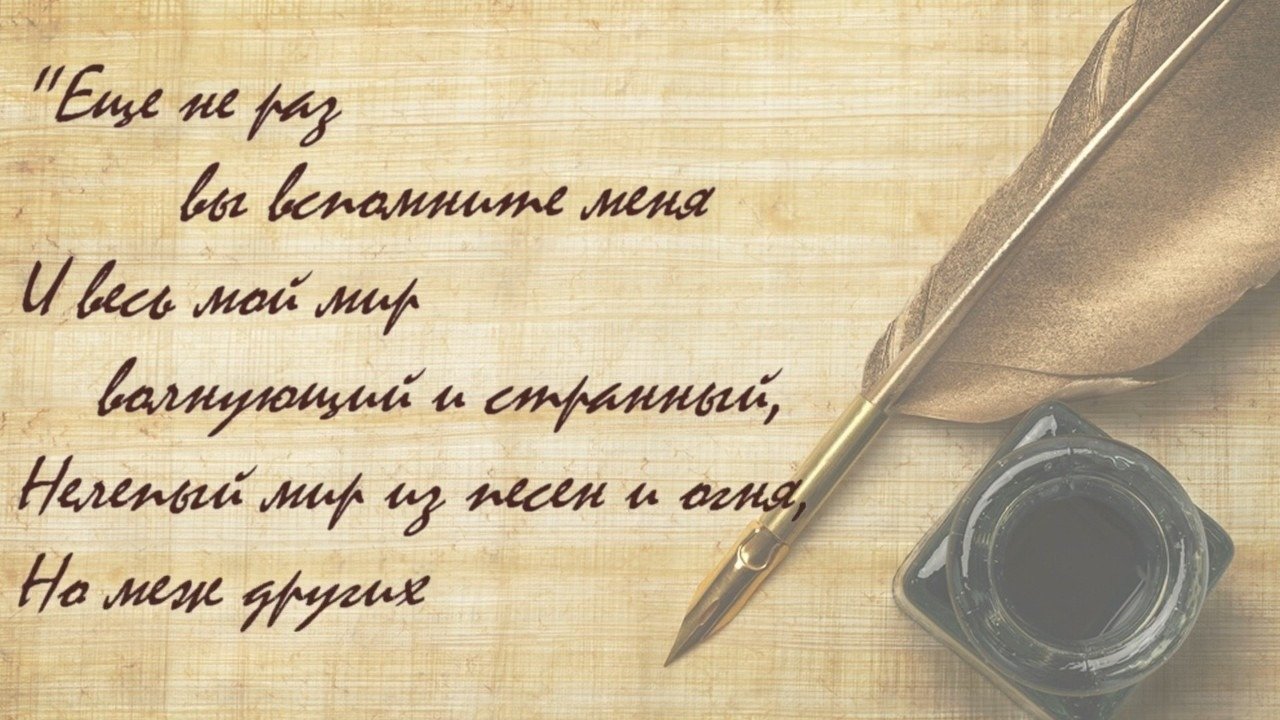 "Еще не раз
вы вспомните меня
И весь мой мир
волнующий и странный,
Нелепый мир из песен и огня,
Но меж других